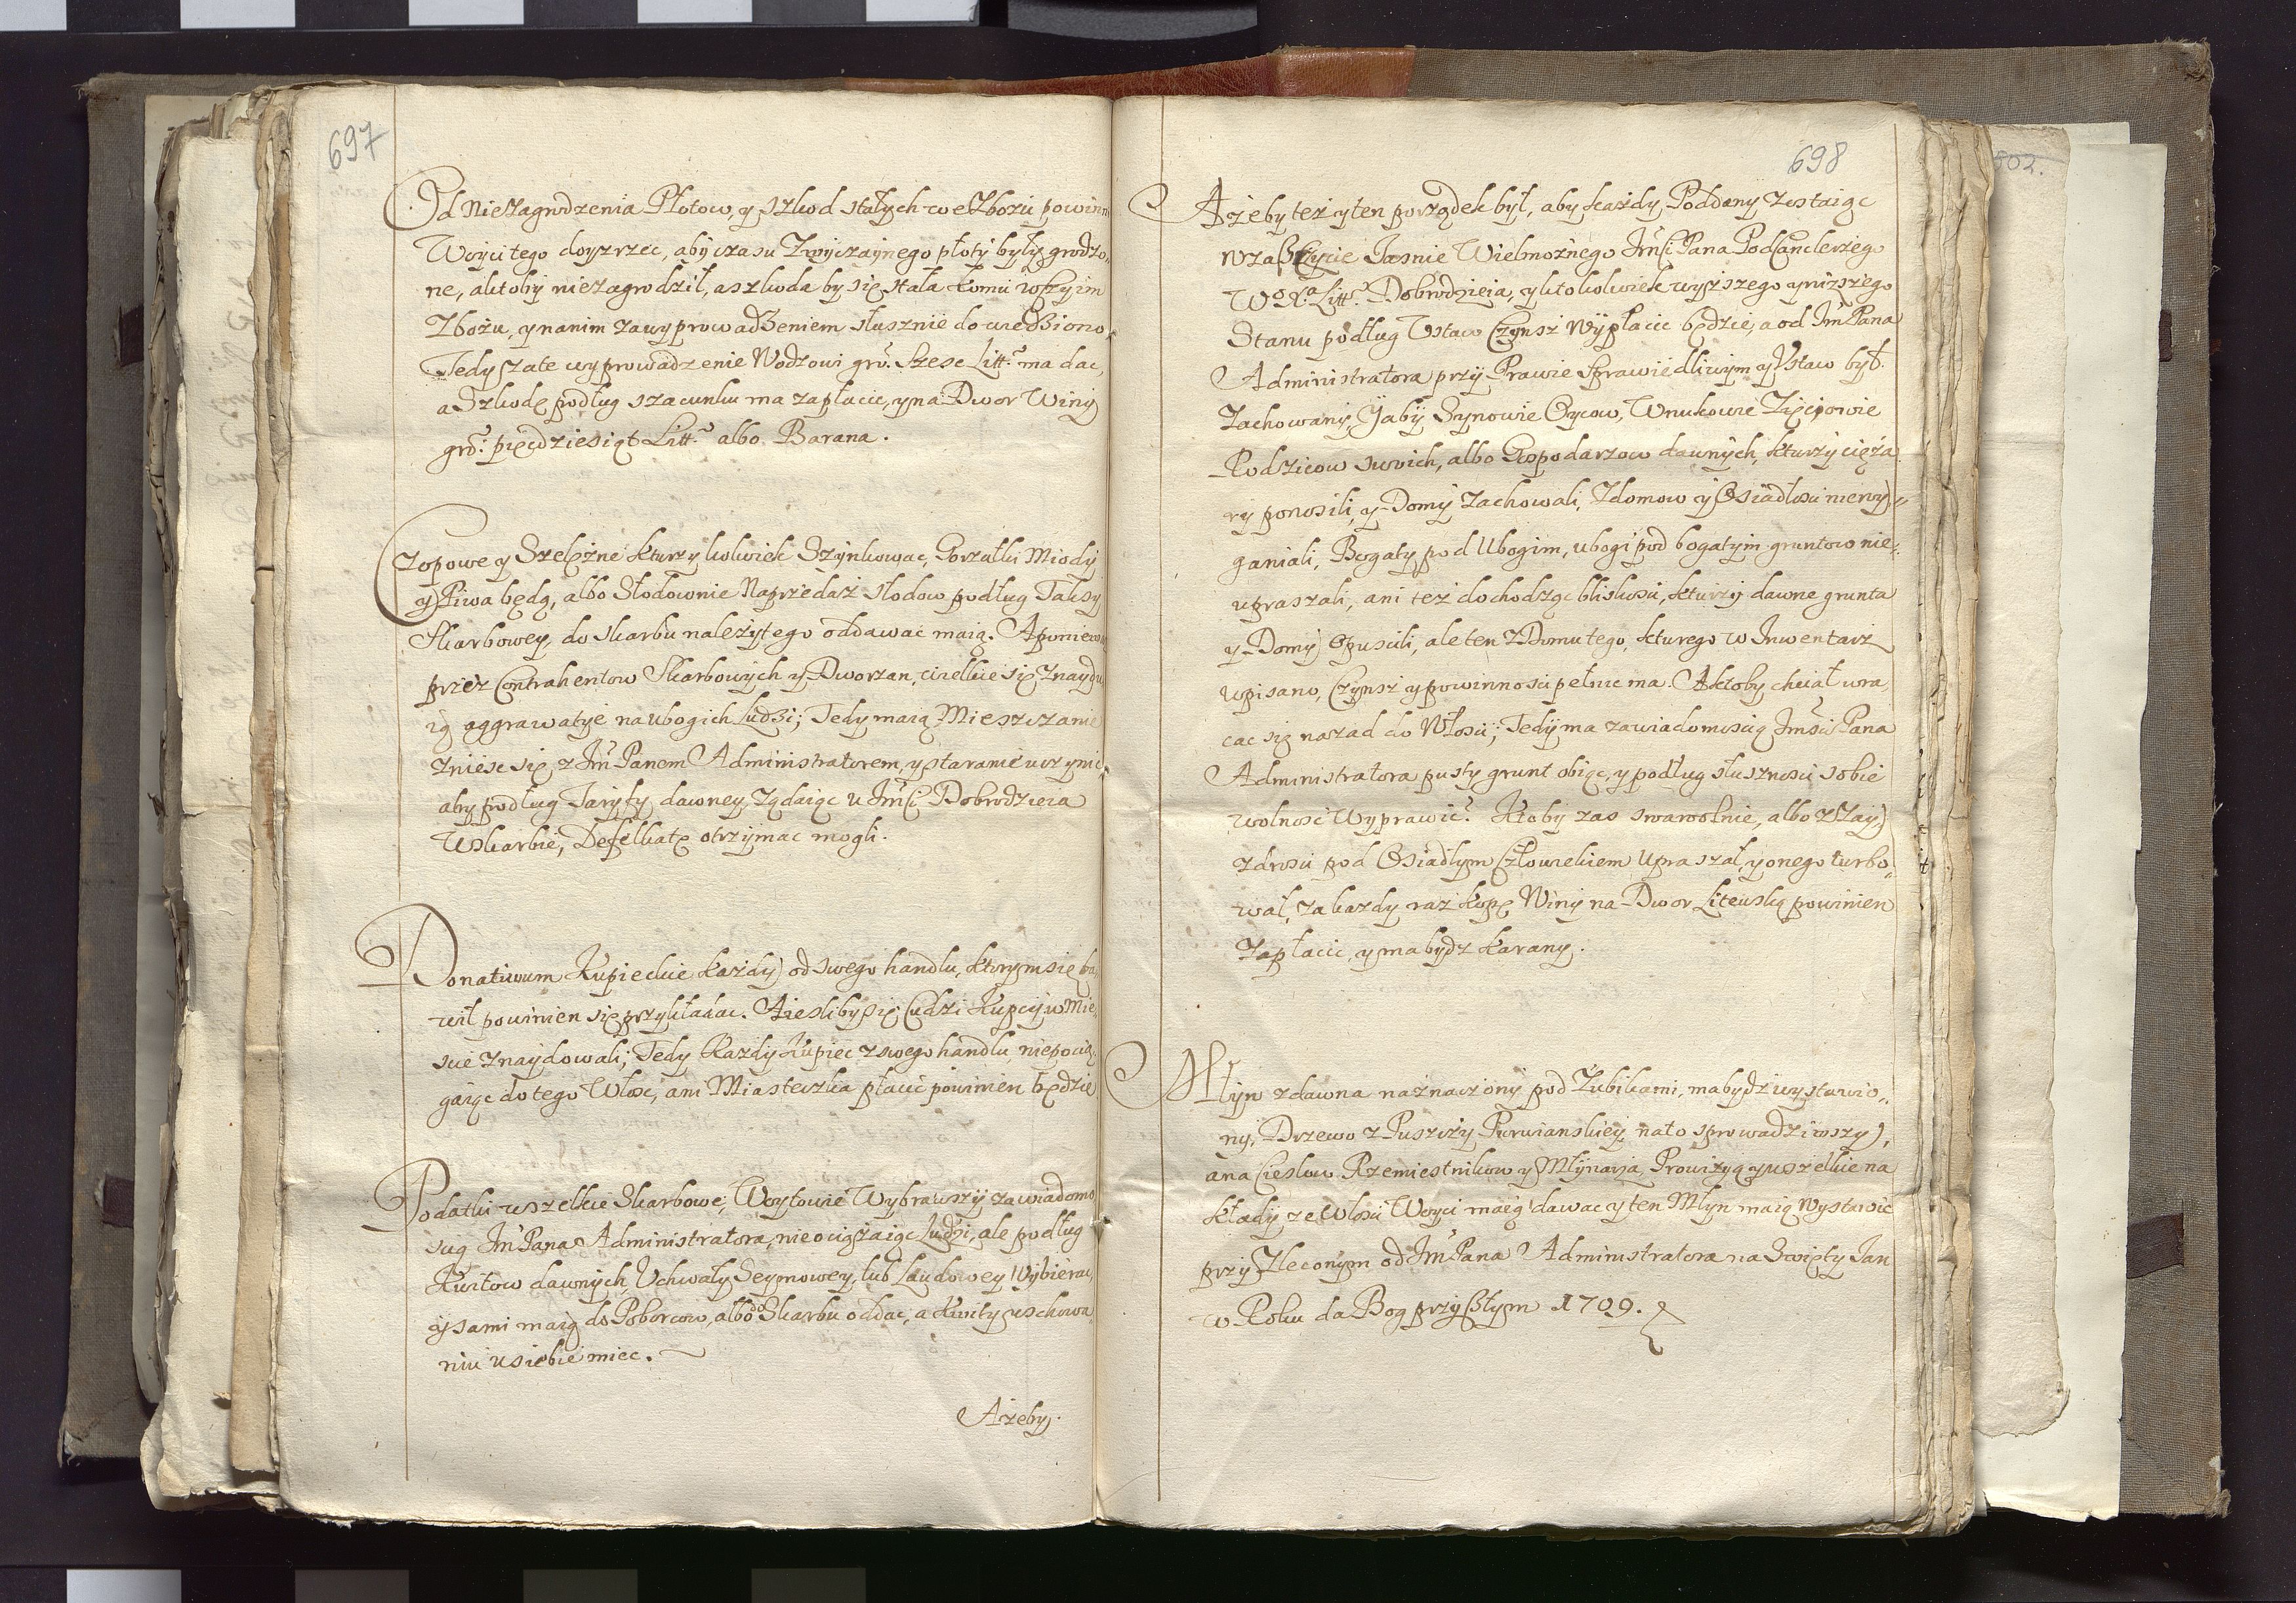 697
Od Niezagrodzenia Płotow, y szkod stałych we Zbożu powinni
Woyci tego doyzrzec, aby czasu Zwyczaynego płoty były grodzo„
ne, a ktoby niezagrodził, a szkoda by się stała komu w czyim
Zbożu, y na nim za wyprowadzeniem słusznie dowiedziono
Tedy za te wyprowadzenie Wodzowi gro: Szesc Litt: ma dac,
a Szkodę podług szacunku ma zapłacic, y na Dwor Winy
gro: pięcdziesiąt Litt: albo Barana.
Czopowe y Szelężne kturzykolwiek Szynkowac, Gorzałki Miody
y Piwa będą, albo Słodownie Naprzedaż słodow podług Taxsy
Skarbowey, do skarbu należytego oddawać maią. A poniewa
przez Contrahentow Skarbowych y Dworzan, wielkie się znaydu
ią aggrawatye na ubogich Ludzi; Tedy maią Mieszczanie
Znieść się z Jm Panem Administratorem, y staranie uczynic
aby podług Taryffy dawney, żądaiąc u Jmści Dobrodzieia
W skarbie, Defelkatę otrzymac mogli.
Donatiwum Kupieckie każdy od swego handlu, ktorym się ba„
wił powinien się przykładac. A iesliby się Cudzi Kupcy w Mie„
scie znaydowali; Tedy Każdy Kupiec z swego handlu, niepocią„
gaiąc do tego Włosc, ani Miasteczka płacić powinien będzie
Podatki wszelkie Skarbowe, Woytowie Wybrawszy za wiadomo„
scią Jm Pana Administratora, nie ociążaiąc Ludzi, ale podług
Kwitow dawnych, Uchwały Seymowey, lub Laudowey Wybierac,
y sami maią do Poborcow, albo do Skarbu oddac, a kwity w schowa„
niu u siebie miec.
Ażeby.
698
Ażeby też y ten porządek był, aby każdy Poddany zostaiąc
w zaszczycie Jasnie Wielmożnego Jmści Pana Podcanclerzego
W° X.ª Litt° Dobrodzieia, y ktokolwiek wyższego y niższego
Stanu podług Ustaw Czynsz Wypłacic będzie, a od Jm Pana
Administratora przy Prawie sprawiedliwym y Ustaw był
Zachowany, Yaby Synowie Oycow, Wnukowie Zięciowie
Rodzicow swoich, albo Gospodarzow dawnych, kturzy cięża„
ry ponosili, y Domy zachowali, z domow y Osiadłosci niewy„
ganiali, Bogaty pod Ubogim, ubogi pod bogatym gruntow nie„
upraszali, ani też dochodząc bliskosci, kturzy dawne grunta
y Domy Opuscili, ale ten z Domu tego, kturego w Inwentarz
wpisano, Czynsz y powinnosci pełnic ma. A ktoby chciał wra„
cac się nazad do Włosci; Tedy ma za wiadomoscią Jmści Pana
Administratora pusty grunt obiąc, y podług słusznosci sobie
wolnosć Wyprawić. Ktoby zas swawolnie, albo z Zay„
zdrosci pod Osiadłym Człowiekiem Upraszał, y onego turbo„
wał, za każdy raz kopę Winy na Dwor Litewską powinien
zapłacic, y ma bydz karany.
Młyn zdawna naznaczony pod Żubikami, ma bydz wystawio„
ny, Drzewo z Puszczy Purwianskiey na to sprowadziwszy,
a na Cieslow Rzemiesłnikow y Młynarza, Prowizyą y wszelkie na
kłady ze Włosci Woyci maią dawac y ten Młyn maią Wystawic
przy Zleconym od Jm Pana Administratora na Swięty Jan
w Roku da Bog przyszłym 1709.
802.